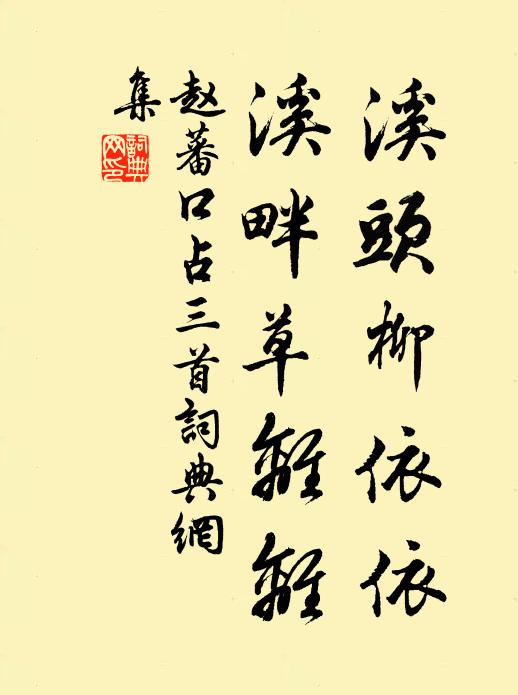 溪頭柳依依
溪畔草離離
赵蕃口占三首詞典網
集
詞典
网印